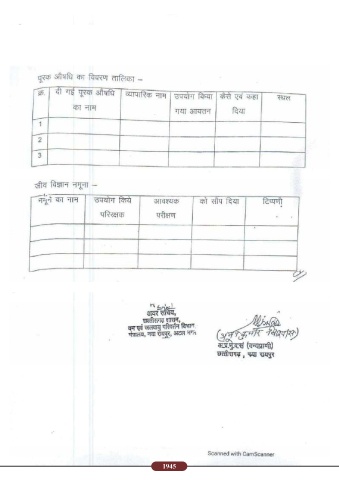 पूरक औषधि का विवरण तालिका –
क्र. दी गई पूरक औषधि का नाम व्यापारिक नाम उपयोग किया गया आयतन कैसे एवं कहा दिया स्थल
1
2
3
जीव विज्ञान नमूना –
नमूने का नाम उपयोग किये परिरक्षक आवश्यक परीक्षण को सौंप दिया टिप्पणी
अवर सचिव,
छत्तीसगढ़ शासन,
वन एवं जलवायु परिवर्तन विभाग
मंत्रालय, नवा रायपुर, अटल नगर
(वन्यप्राणी)
छत्तीसगढ़, नवा रायपुर
Scanned with CamScanner
1945